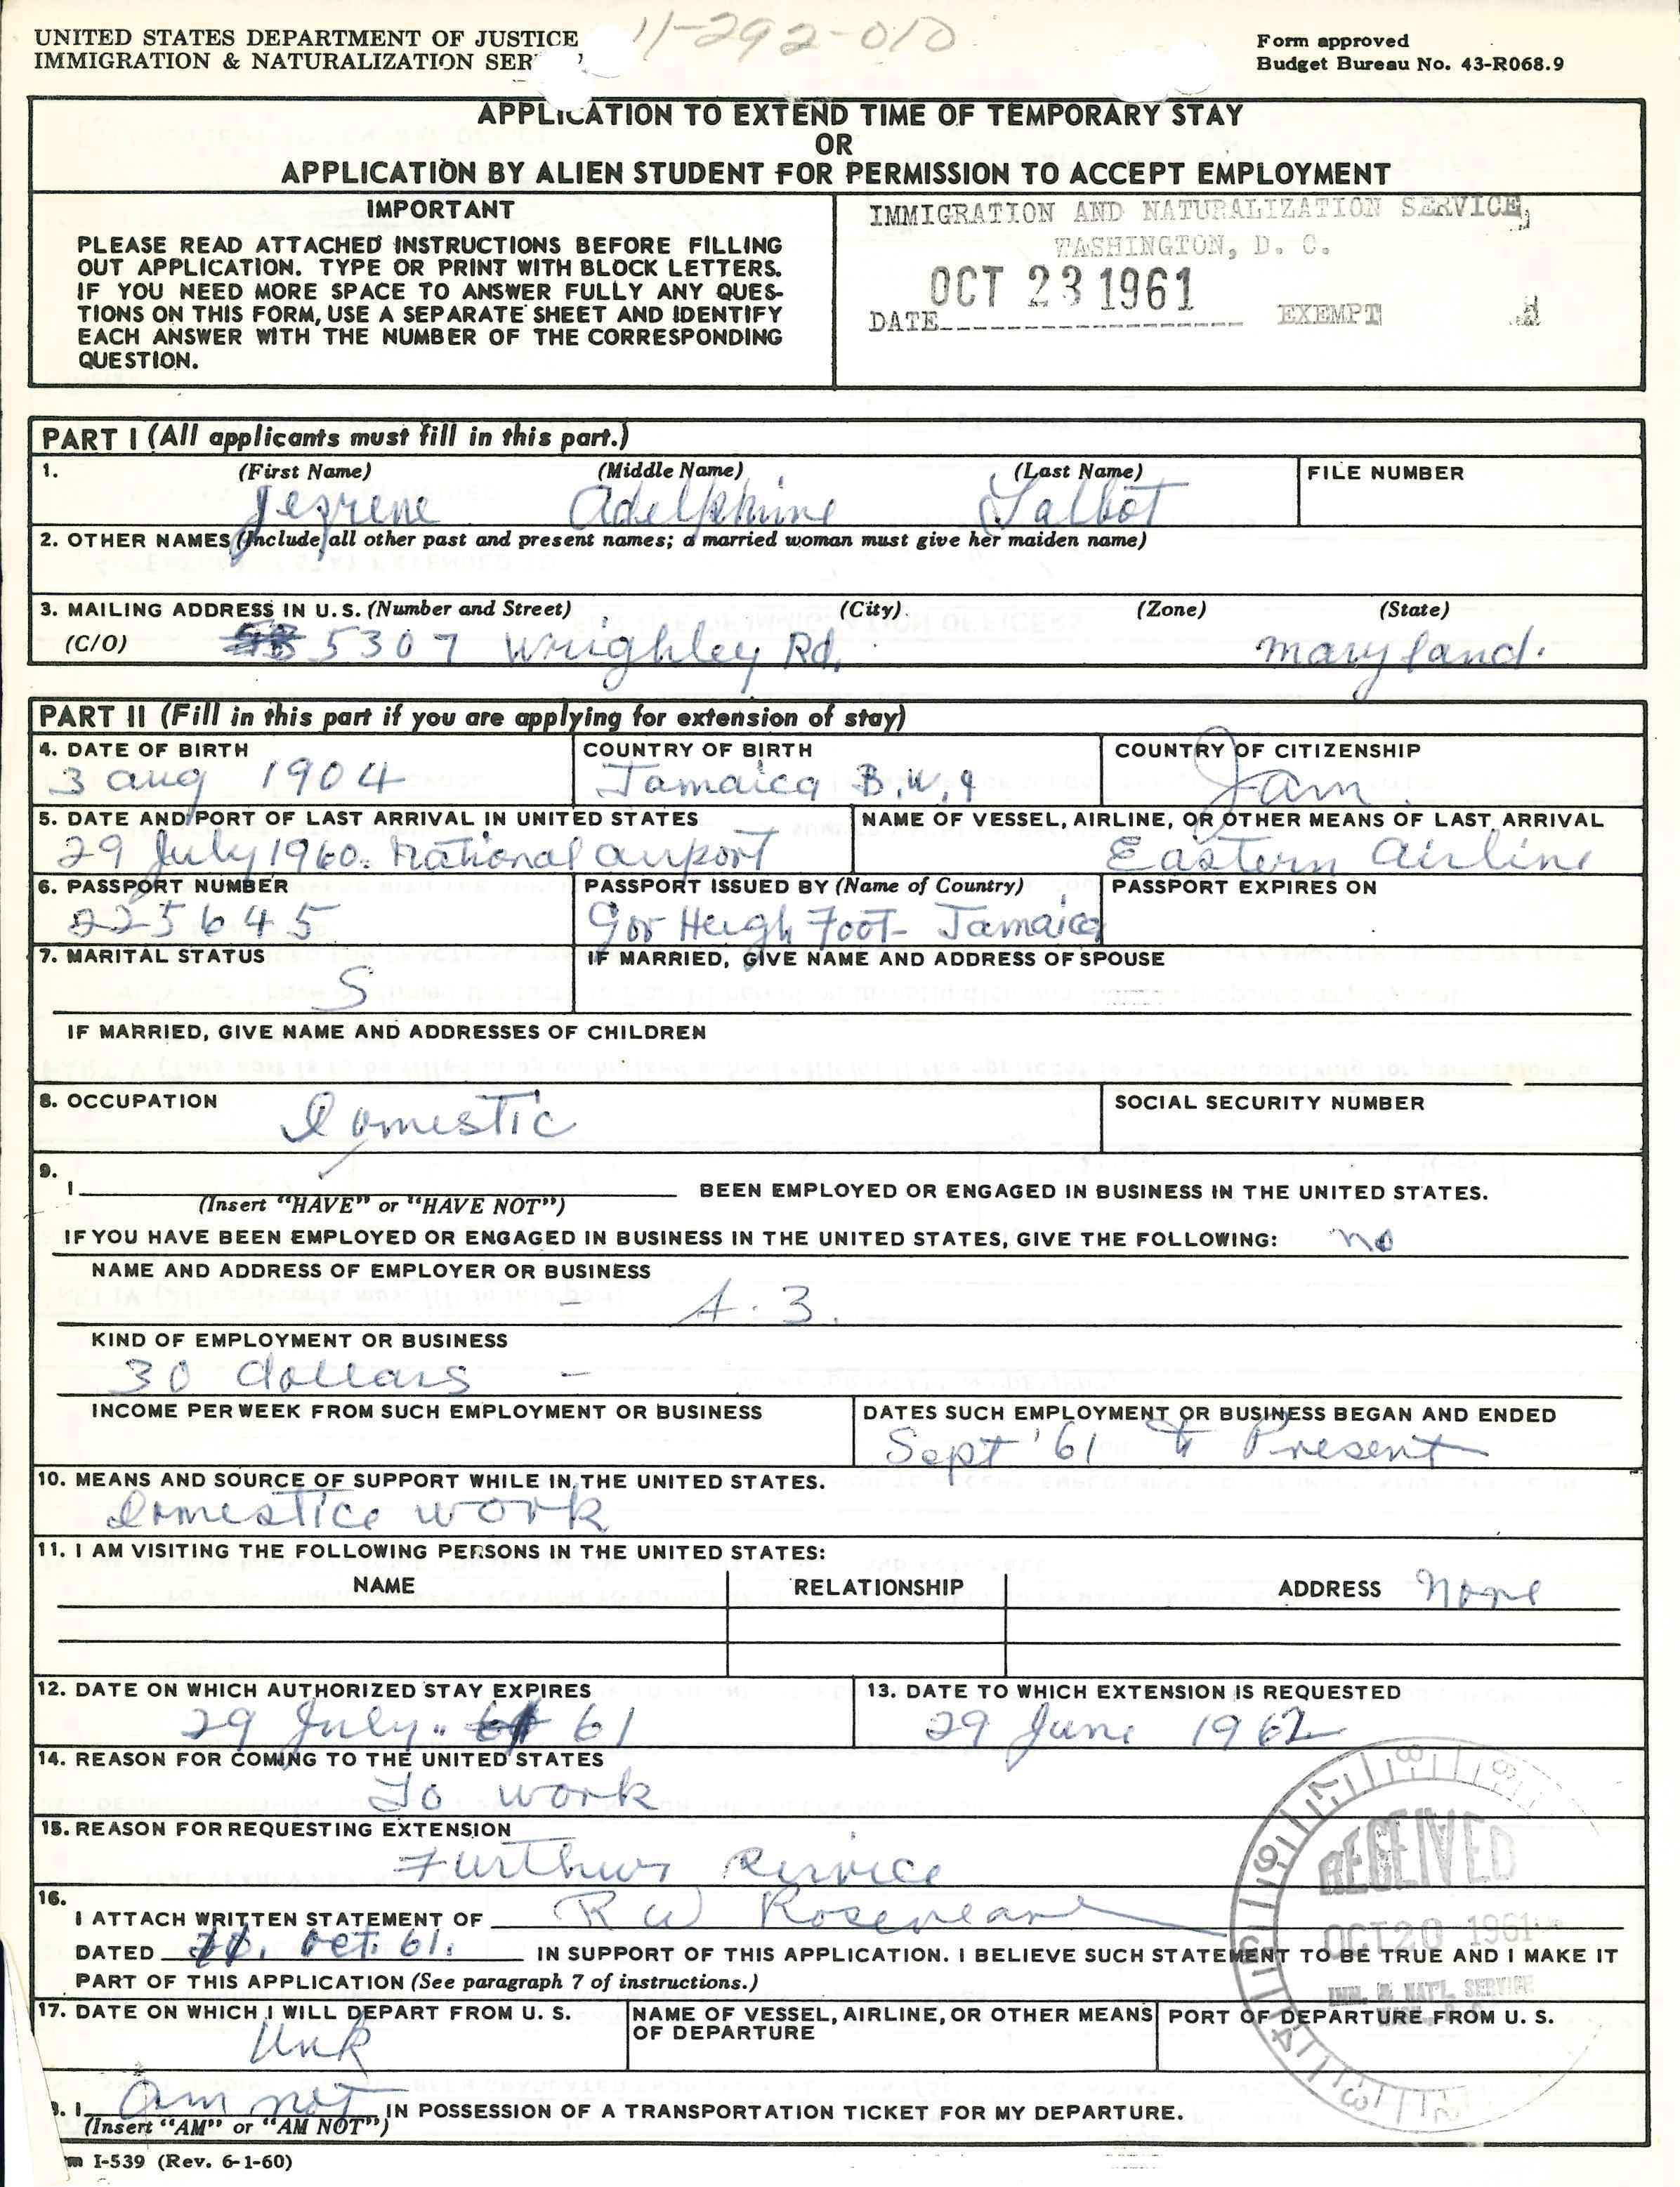 11-292-010
UNITED STATES DEPARTMENT OF JUSTICE
IMMIGRATION & NATURALIZATION SER
Form approved
Budget Bureau No. 43-R068.9
APPLICATION TO EXTEND TIME OF TEMPORARY STAY
OR
APPLICATION BY ALIEN STUDENT FOR PERMISSION TO ACCEPT EMPLOYMENT
IMPORTANT
PLEASE READ ATTACHED INSTRUCTIONS BEFORE FILLING
OUT APPLICATION. TYPE OR PRINT WITH BLOCK LETTERS.
IF YOU NEED MORE SPACE TO ANSWER FULLY ANY QUES-
TIONS ON THIS FORM, USE A SEPARATE SHEET AND IDENTIFY
EACH ANSWER WITH THE NUMBER OF THE CORRESPONDING
QUESTION.
IMMIGRATION AND NATURALIZATION SERVICE,
WASHINGTON, D. C.
OCT 23 1961
DATE EXEMPT
PART I (All applicants must fill in this part.)
1. (First Name) (Middle Name) (Last Name) FILE NUMBER
Adelphine Talbot
2. OTHER NAMES (Include all other past and present names; a married woman must give her maiden name)
3. MAILING ADDRESS IN U.S. (Number and Street) (City) (Zone) (State)
(C/O) 5307 Wrighley Rd, maryland.
PART II (Fill in this part if you are applying for extension of stay)
4. DATE OF BIRTH COUNTRY OF BIRTH COUNTRY OF CITIZENSHIP
3 aug 1904 Jamaica B.W.I Jam.
5. DATE AND PORT OF LAST ARRIVAL IN UNITED STATES NAME OF VESSEL, AIRLINE, OR OTHER MEANS OF LAST ARRIVAL
29 July 1960. National airport Eastern Airline
6. PASSPORT NUMBER PASSPORT ISSUED BY (Name of Country) PASSPORT EXPIRES ON
225645 Gov Heugh Foot- Jamaica
7. MARITAL STATUS IF MARRIED, GIVE NAME AND ADDRESS OF SPOUSE
S
IF MARRIED, GIVE NAME AND ADDRESSES OF CHILDREN
8. OCCUPATION SOCIAL SECURITY NUMBER
Domestic
9.
I BEEN EMPLOYED OR ENGAGED IN BUSINESS IN THE UNITED STATES.
(Insert "HAVE" or "HAVE NOT")
IF YOU HAVE BEEN EMPLOYED OR ENGAGED IN BUSINESS IN THE UNITED STATES, GIVE THE FOLLOWING: no
NAME AND ADDRESS OF EMPLOYER OR BUSINESS
- A.3.
KIND OF EMPLOYMENT OR BUSINESS
30 dollars -
INCOME PER WEEK FROM SUCH EMPLOYMENT OR BUSINESS DATES SUCH EMPLOYMENT OR BUSINESS BEGAN AND ENDED
Sept '61 to Present
10. MEANS AND SOURCE OF SUPPORT WHILE IN THE UNITED STATES.
Domestice work
11. I AM VISITING THE FOLLOWING PERSONS IN THE UNITED STATES:
NAME RELATIONSHIP ADDRESS none
12. DATE ON WHICH AUTHORIZED STAY EXPIRES 13. DATE TO WHICH EXTENSION IS REQUESTED
29 July 61 29 June 1962
14. REASON FOR COMING TO THE UNITED STATES
To work
15. REASON FOR REQUESTING EXTENSION
Further service
16.
I ATTACH WRITTEN STATEMENT OF R W
DATED Oct. 61. IN SUPPORT OF THIS APPLICATION. I BELIEVE SUCH STATEMENT TO BE TRUE AND I MAKE IT
PART OF THIS APPLICATION (See paragraph 7 of instructions.)
RECEIVED
OCT 20 1961
IMM. & NAT'L SERVICE
17. DATE ON WHICH I WILL DEPART FROM U. S. NAME OF VESSEL, AIRLINE, OR OTHER MEANS OF DEPARTURE PORT OF DEPARTURE FROM U. S.
Unk
I am not IN POSSESSION OF A TRANSPORTATION TICKET FOR MY DEPARTURE.
(Insert "AM" or "AM NOT")
I-539 (Rev. 6-1-60)